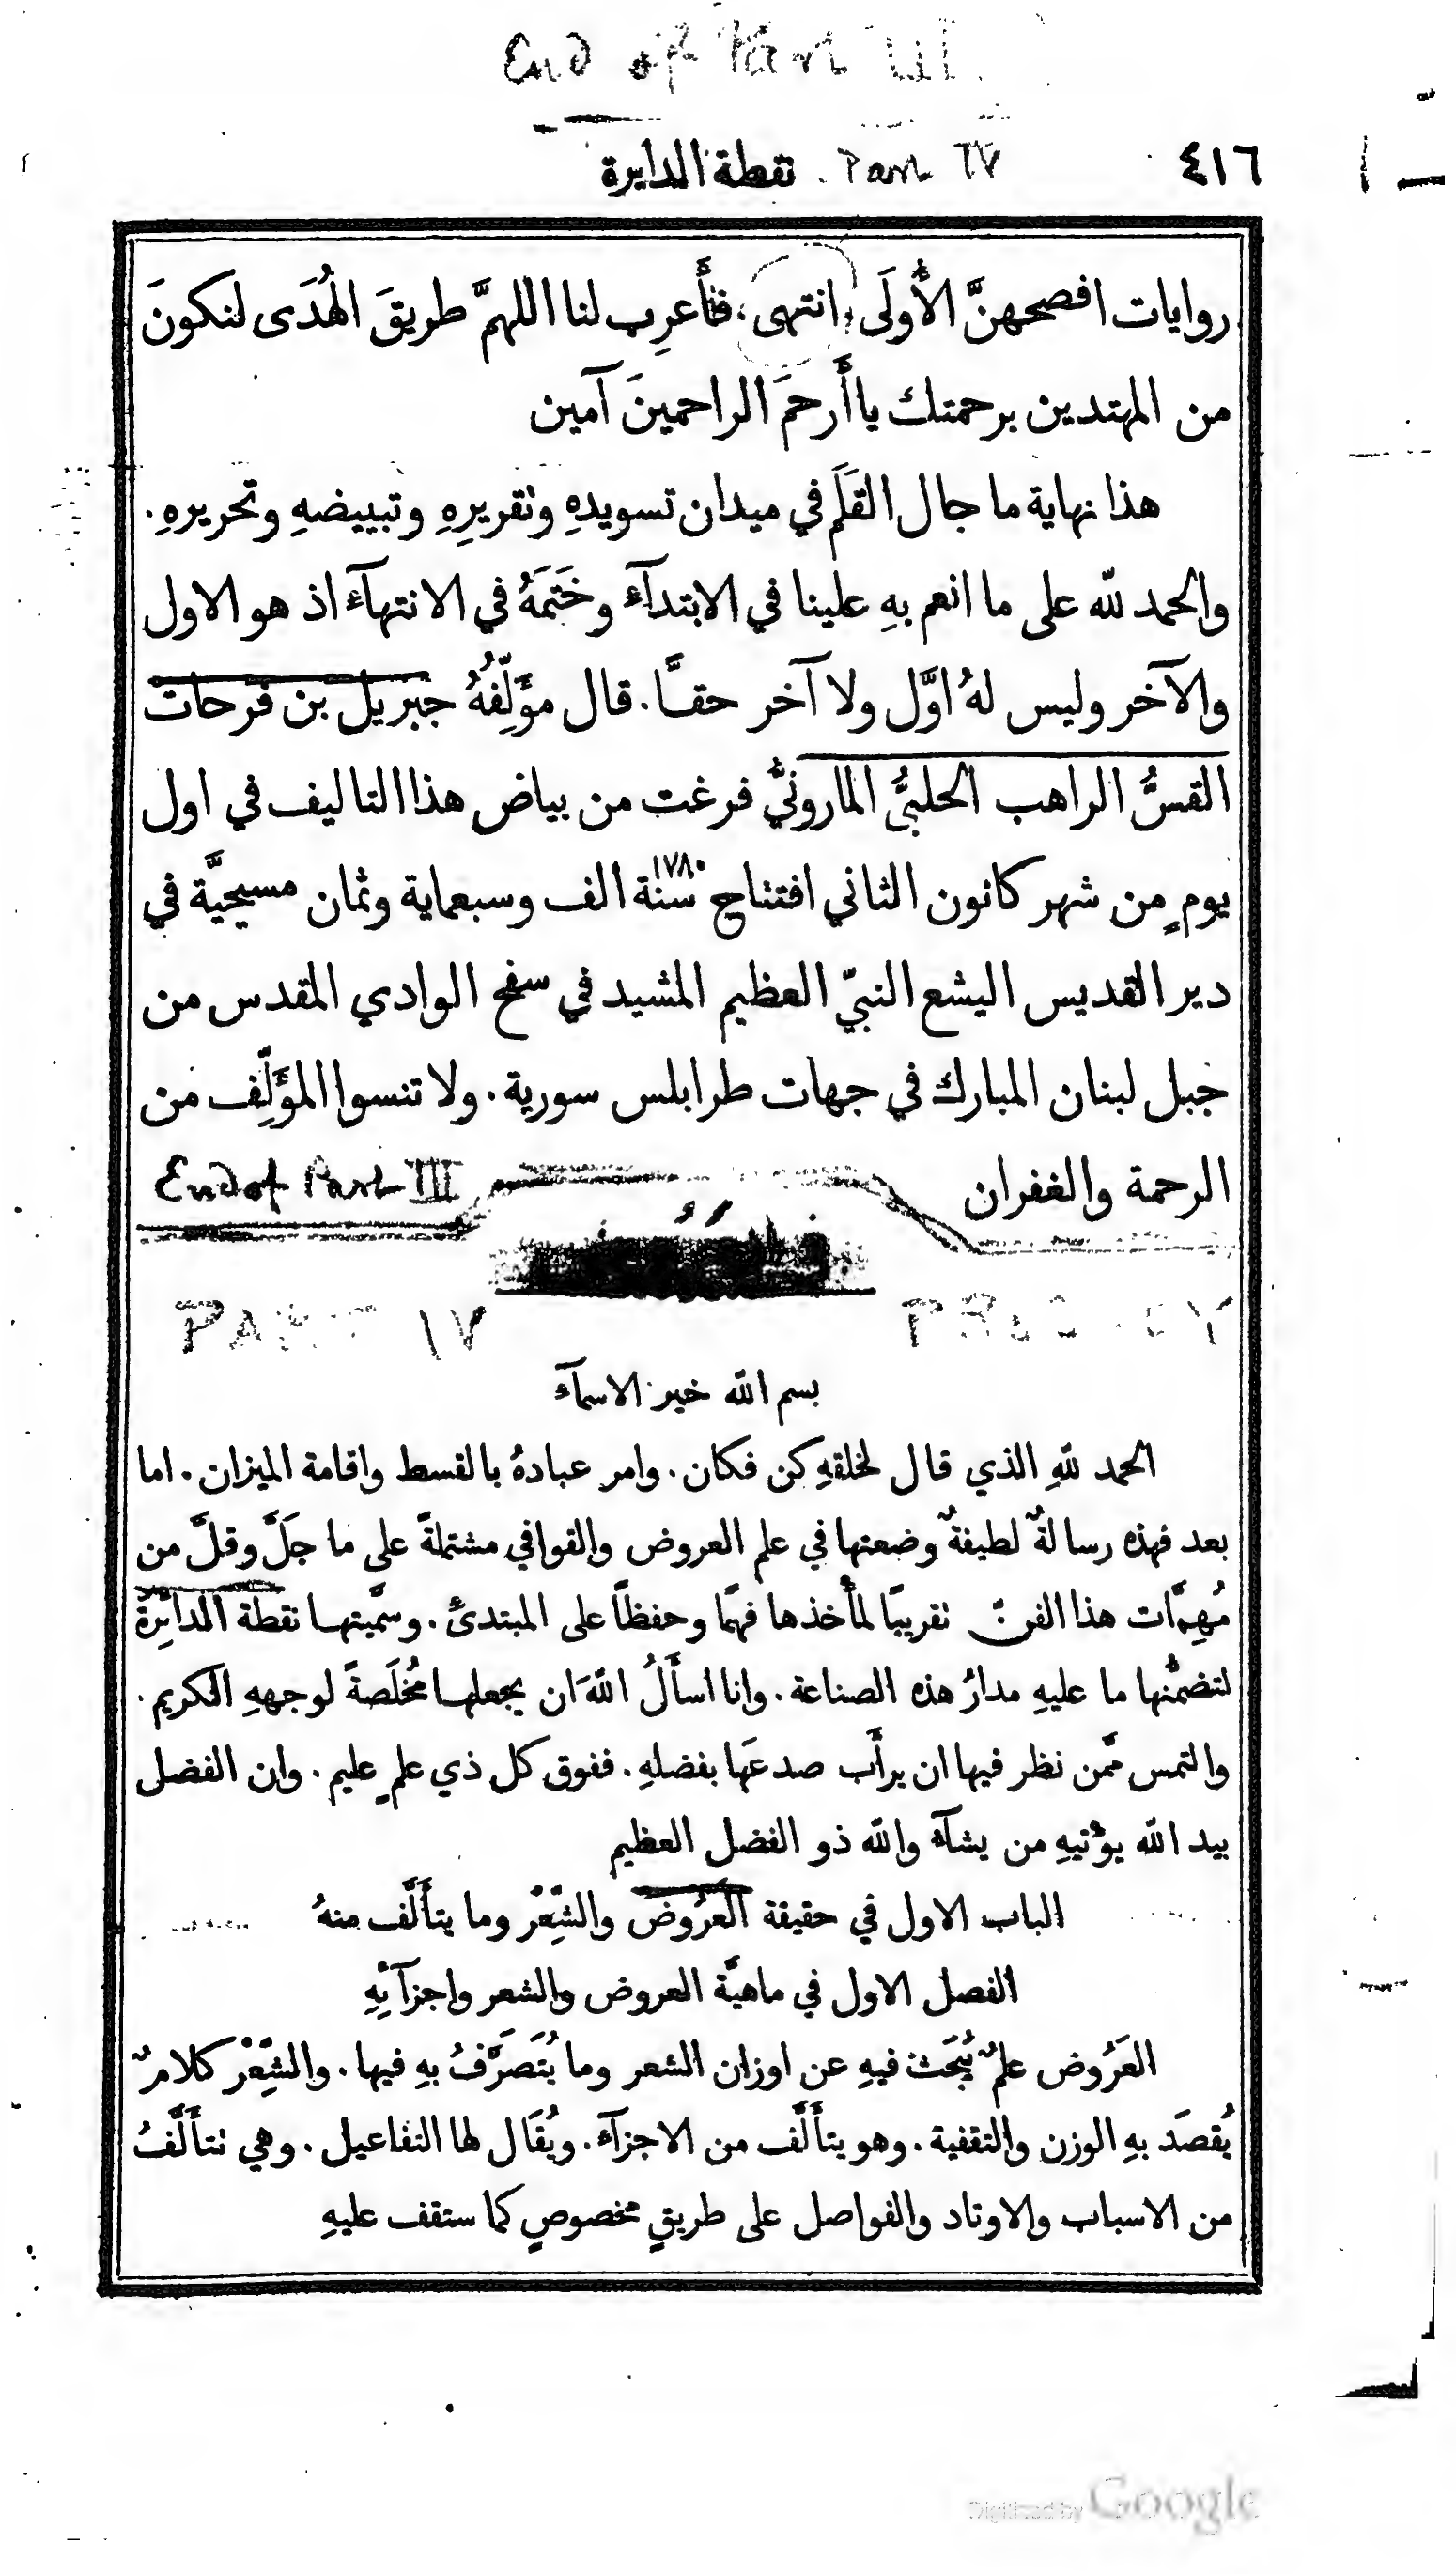 End of Part III
٤١٦ Part IV نقطة الدايرة
روايات افصحهنَّ الأُولَى، انتهى، فأَعرِب لنا اللهمَّ طريقَ الهُدَى لنكونَ
من المهتدين برحمتك يا أَرحمَ الراحمينَ آمين
هذا نهاية ما جال القَلَم في ميدان تسويدهِ وتقريرِهِ وتبييضهِ وتحريرهِ.
والحمد للّه على ما انعم بهِ علينا في الابتدآءِ وخَتَمَهُ في الانتهآءِ اذ هو الاول
والآخر وليس لهُ اوَّل ولا آخر حقـًّا. قال مؤَلِّفهُ جبريل بن فرحات
القسُّ الراهب الحلبيُّ المارونيُّ فرغت من بياض هذا التاليف في اول
يومٍ من شهر كانون الثاني افتتاح سنة ١٧٨٠ الف وسبعماية وثمان مسيحيَّة في
دير القديس اليشع النبيّ العظيم المشيد في سفح الوادي المقدس من
جبل لبنان المبارك في جهات طرابلس سورية. ولا تنسوا المؤَلِّف من
الرحمة والغفران End of Part III
PART IV PROSODY
بسم اللّه خير الاسمآءِ
الحمد للّهِ الذي قال لخلقهِ كن فكان. وامر عبادهُ بالقسط واقامة الميزان. اما
بعد فهذه رسالةٌ لطيفةٌ وضعتها في علم العروض والقوافي مشتملةً على ما جَلَّ وقلَّ من
مُهِمَّات هذا الفنّ تقريبًا لمأخذها فهمًا وحفظًا على المبتدئ. وسمَّيتهـا نقطة الدائرة
لتضمُّنها ما عليهِ مدارُ هذه الصناعة. وانا اسأَلُ اللّهَ ان يجعلهـا مُخلَصةً لوجههِ الكريم.
والتمس ممَّن نظر فيها ان يرأَب صدعَها بفضلهِ. ففوق كل ذي علمٍ عليم. وان الفضل
بيد اللّه يؤْتيهِ من يشآءُ واللّه ذو الفضل العظيم
الباب الاول في حقيقة العَرُوض والشِّعْر وما يتأَلَّف منهُ
الفصل الاول في ماهيَّة العروض والشعر واجزآئِهِ
العَرُوض علمٌ يُبحَث فيهِ عن اوزان الشعر وما يُتَصرَّفُ بهِ فيها. والشِّعْر كلامٌ
يُقصَد بهِ الوزن والتقفية. وهو يتأَلَّف من الاجزآءِ. ويُقَال لها التفاعيل. وهي تتأَلَّفُ
من الاسباب والاوتاد والفواصل على طريقٍ مخصوصٍ كما ستقف عليهِ
Digitized by Google